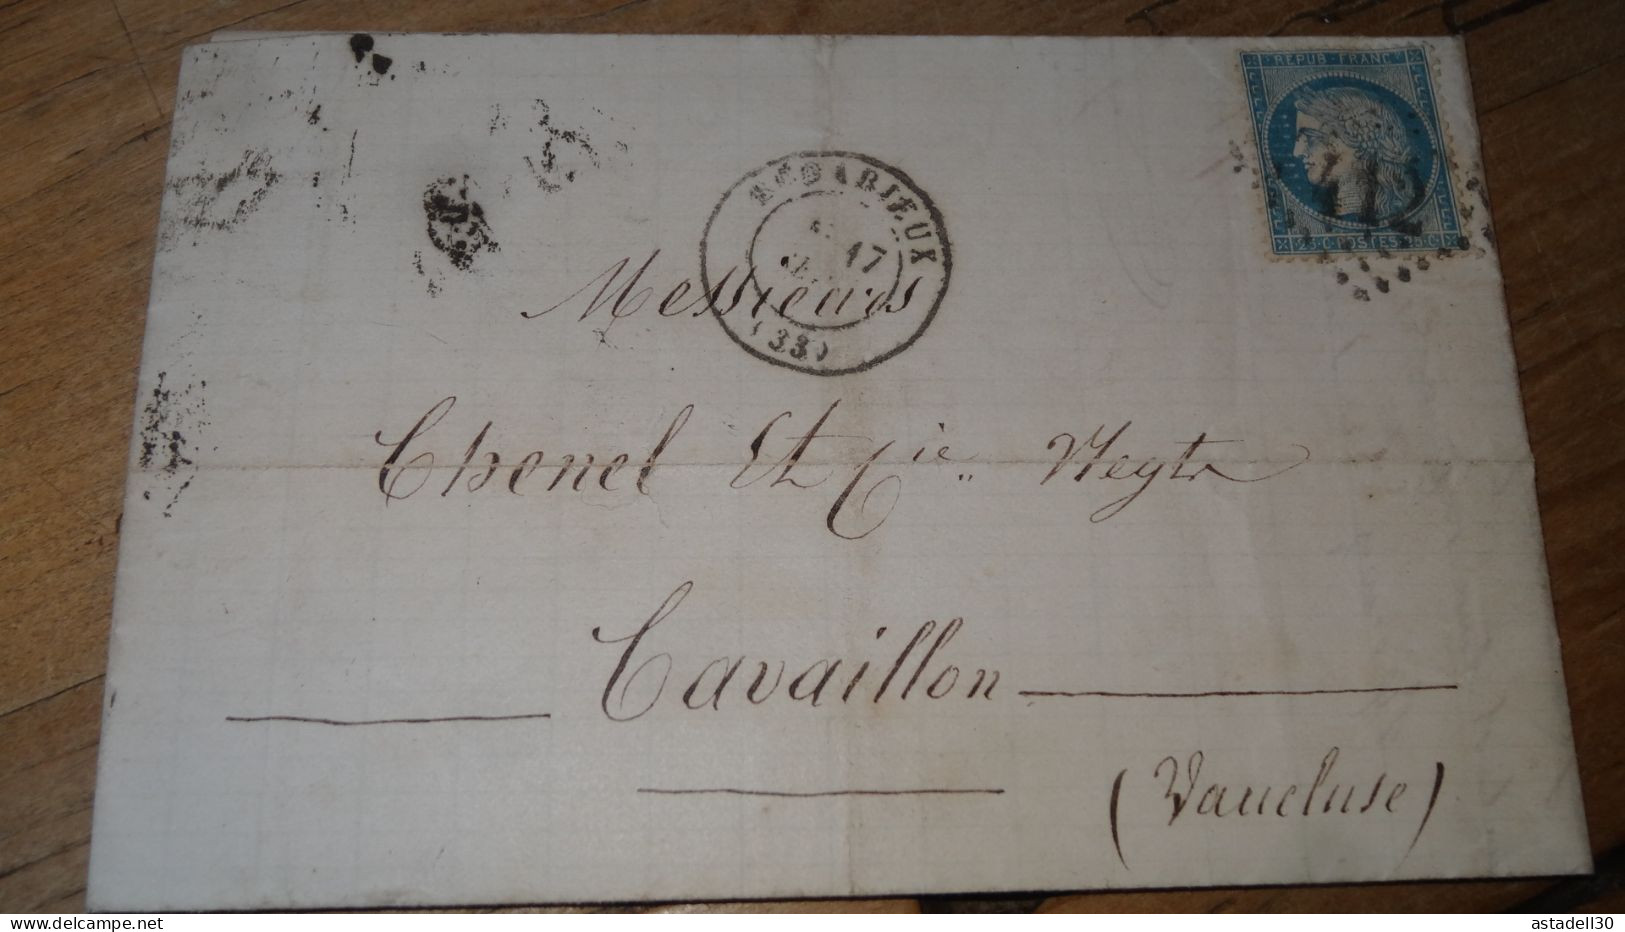 REPUB. FRANC
412
25 C. POSTES 25 C.
BÉDARIEUX
17
(33)
Messieurs
Chonel Et Cie Negts
Cavaillon
(Vaucluse)
delcampe.net
astadell30